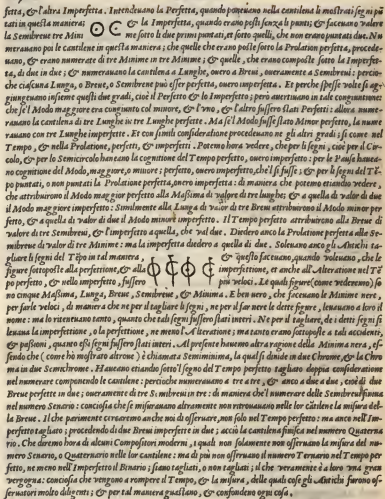 fetta, & l'altra Imperfetta. Intendeuano la Perfetta, quando poneuano nella cantilena li mostrati segni pũ
tati in questa maniera; & la Imperfetta, quando erano posti senza li punti; & faceuano valere
la Semibreue tre Mini me sotto li due primi puntati, et sotto quelli, che non erano puntati due. Nu
merauano poi le cantilene in questa maniera; che quelle che erano poste sotto la Prolation perfetta, procede-
uano, & erano numerate di tre Minime in tre Minime; & quelle, che erano composte sotto la Imperfet-
ta, di due in due; & numerauano la cantilena a Lunghe, ouero a Breui, oueramente a Semibreui: percio-
che ciascuna Lunga, o Breue, o Semibreue può esser perfetta, ouero imperfetta. Et perche spesse volte si ag-
giungeuano insieme questi due gradi, cioè il Perfetto & lo Imperfetto; però auertiuano in tale congiuntione
che se'l Modo maggiore era congiunto col minore, & l'vno, & l'altro fussero stati Perfetti: allora nume-
rauano la cantilena di tre Lunghe in tre Lunghe perfette. Ma se'l Modo fusse stato Minor perfetto, la nume
rauano con tre Lunghe imperfette. Et con simili consideratione procedeuano ne gli altri gradi; si come nel
Tempo, & nella Prolatione, perfetti, & imperfetti. Potemo hora vedere, che per li segni, cioè per il Cir-
colo, & per lo Semicircolo haueano la cognitione del Tempo perfetto, ouero imperfetto: per le Pause haueã
no cognitione del Modo, maggiore, o minore; perfetto, ouero imperfetto, che'l si fusse; & per li segni del Tẽ
po puntati, o non puntati la Prolatione perfetta, ouero imperfetta: di maniera che potemo etiandio vedere,
che attribuirono il Modo maggior perfetto alla Massima di valore di tre lunghe; & a quella di valor di due
il Modo maggior imperfetto: Similmente alla Lunga di valor di tre Breui attribuirono il Modo minor per-
fetto, & a quella di valor di due il Modo minor imperfetto. Il Tempo perfetto attribuirono alla Breue di
valore di tre Semibreui, & l'imperfetto a quella, che val due. Diedero anco la Prolatione perfetta alla Se-
mibreue di valor di tre Minime: ma la imperfetta diedero a quella di due. Soleuano anco gli Antichi ta-
gliare li segni del Tẽpo in tal maniera; & questo faceuano, quando voleuano, che le
figure sottoposte alla perfettione, & alla imperfettione, et anche all'Alteratione nel Tẽ
po perfetto, & nello imperfetto, fussero più veloci. Le quali figure (come vedremo) so
no cinque Massima, Lunga, Breue, Semibreue, & Minima. E ben vero, che faceuano le Minime nere,
per farle veloci, di maniera che ne per il tagliare li segni, ne per il far nere le dette figure, leuauano a loro il
nome: ma lo ritenevano tanto, quanto che tali segni fussero stati interi. Ne per il tagliare, de i detti segni si
leuaua la imperfettione, o la perfettione, ne meno l'Alteratione; ma tanto erano sottoposte a tali accidenti,
& passioni, quanto essi segni fussero stati interi. Al presente hauemo altra ragione della Minima nera, es-
sendo che (come hò mostrato altroue) è chiamata Semiminima, la qual si diuide in due Chrome, & la Chro
ma in due Semichrome. Haueano etiandio sotto'l segno del Tempo perfetto tagliato doppia consideratione
nel numerare componendo le cantilene: percioche numerauano a tre a tre, & anco a due a due, cioè di due
Breue perfette in due; oueramente di tre Semibreui in tre: di maniera che'l numerare delle Semibreui finiua
nel numero Senario: conciosia che se misurauano altramente non ritrouauano nelle lor cantilene la misura del-
la Breue. Il che parimente cercarono anche noi di osseruare, non solo nel Tempo perfetto: ma anco nell'Im-
perfetto tagliato; procedendo di due Breui imperfette in due; acciò la cantilena finisca nel numero Quaterna
rio. Che diremo hora di alcuni Compositori moderni, i quali non solamente non osseruano la misura del nu-
mero Senario, o Quaternario nelle lor cantilene: ma di più non osseruano il numero Ternario nel Tempo per
fetto, ne meno nell'Imperfetto il Binario; siano tagliati, o non tagliati; il che veramente è a loro vna gran
vergogna: conciosia che vengono a rompere il Tempo, & la misura, delle quali cose gli Antichi furono os-
seruatori molto diligenti; & per tal maniera guastano, & confondeno ogni cosa.